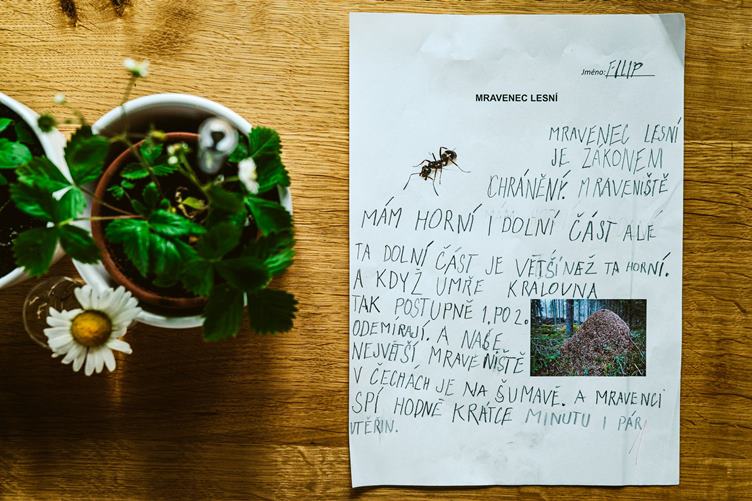 Jméno: FILIP
MRAVENEC LESNÍ
MRAVENEC LESNÍ
JE ZÁKONEM
CHRÁNĚNÝ. MRAVENIŠTĚ
MÁM HORNÍ I DOLNÍ ČÁST ALE
TA DOLNÍ ČÁST JE VĚTŠÍ NEŽ TA HORNÍ.
A KDYŽ UMŘE KRALOVNA
TAK POSTUPNĚ 1. PO 2.
ODEMIRAJÍ. A NAŠE
NEJVĚTŠÍ MRAVENIŠTĚ
V ČECHÁCH JE NA ŠUMAVĚ. A MRAVENCI
SPÍ HODNĚ KRÁTCE MINUTU I PÁR
VTEŘIN.